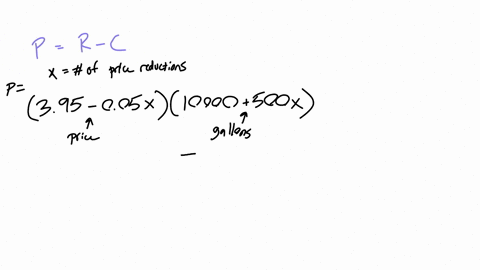 P = R - C
x = # of price reductions
P =
(3.95 - 0.05x)(10000 + 500x)
↑ ↑
price gallons
—